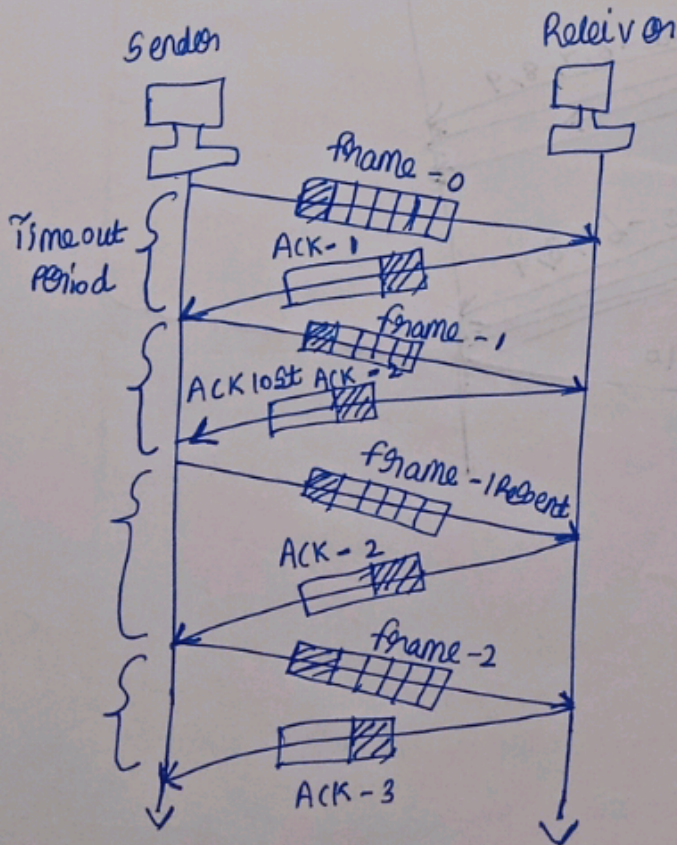 Sender
Receiver
frame-0
Timeout
Period
ACK-1
frame-1
ACK lost ACK-2
frame-1 Resent
ACK-2
frame-2
ACK-3